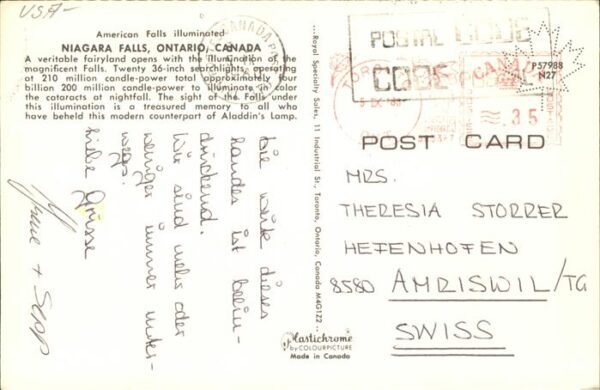 USA-
American Falls illuminated
NIAGARA FALLS, ONTARIO, CANADA
A veritable fairyland opens with the illumination of the
magnificent Falls. Twenty 36-inch searchlights, operating
at 210 million candle-power total approximately four
billion 200 million candle-power to illuminate in color
the cataracts at nightfall. The sight of the Falls under
this illumination is a treasured memory to all who
have beheld this modern counterpart of Aladdin's Lamp.
Die weite dieses
Landes ist beein-
druckend.
Wir sind mehr oder
weniger immer unter-
wegs.
liebe Grüsse
+ Sepp
Royal Specialty Sales, 11 Industrial St., Toronto, Ontario, Canada M4G1Z2
Plastichrome
by COLOURPICTURE
Made in Canada
CANADA
POSTAL CODE
CODE
CANADA
P57988
N27
.35
POST CARD
MRS.
THERESIA STORRER
HEFENHOFEN
8580 AMRISWIL/TG
SWISS